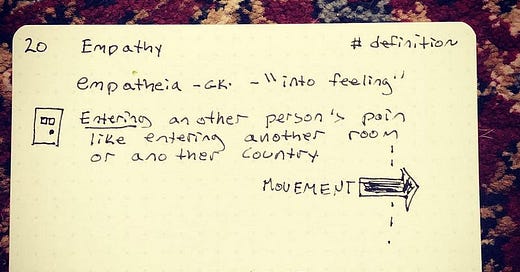 20 Empathy # definition
empatheia - GK. - "into feeling"
Entering another person's pain
like entering another room
or another country
MOVEMENT